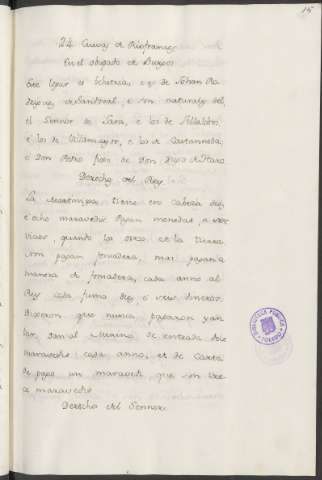 15
24 Cuevas de Riofrancos
En el obispado de Burgos
Este logar es Behetria, e es de Johan Ro
drigues de Sandoval, e son naturales del,
el Sennor de Lara, e los de Villalobos,
e los de Villamayor, e los de Castanneda,
e Don Pedro fijo de Don Diego de Haro
Derechos del Rey
La Martiniega tiene en Cabeza diez
e ocho maravedis. Pagan monedas, e ser
vicios, quando los otros de la tierra.
non pagan fonsadera, mas pagan a
manera de fonsadera, cada anno al
Rey cada fumo diez e seis dineros.
Dixeron que nunca pagaron yan
tar, dan al Merino de entrada doce
maravedis cada anno, et de Carta
de pago un maravedi, que son tre
ce maravedis
Derechos del Sennor
BIBLIOTECA PUBLICA
TOLEDO